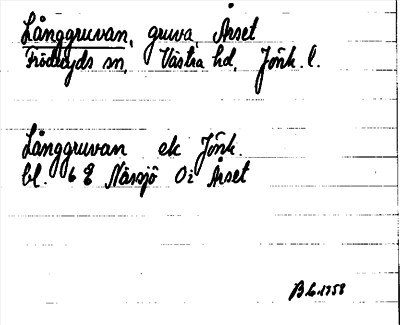 Långgruvan, gruva, Årset
Fröderyds sn, Västra hd, Jönk. l.
Långgruvan ek Jönk.
bl. 6 E Nässjö 0i Årset
BL 1758